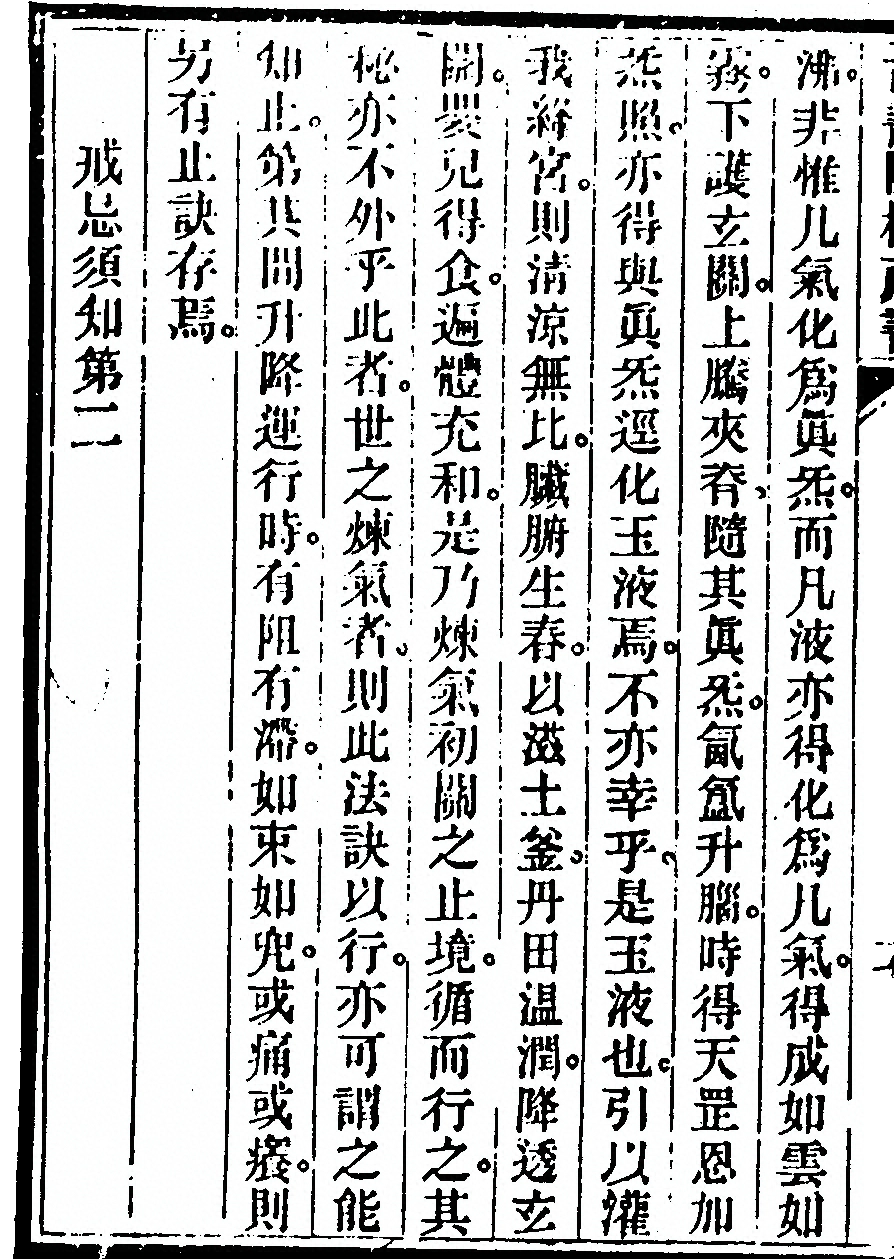 沸。非惟凡氣化爲眞炁。而凡液亦得化爲凡氣。得成如雲如
霧。下護玄關。上騰夾脊、隨其眞炁。氤氳升腦。時得天罡恩加
炁照。亦得與眞炁逕化玉液焉。不亦幸乎。是玉液也。引以灌
我絳宮。則清涼無比。臟腑生春。以滋土釜。丹田温潤。降透玄
關。嬰兒得食。遍體充和。是乃煉氣初關之止境。循而行之。其
秘亦不外乎此者。世之煉氣者、則此法訣以行。亦可謂之能
知止。第其間升降運行時。有阻有滯。如束如兜。或痛或癢。則
另有止訣存焉。
戒忌須知第二